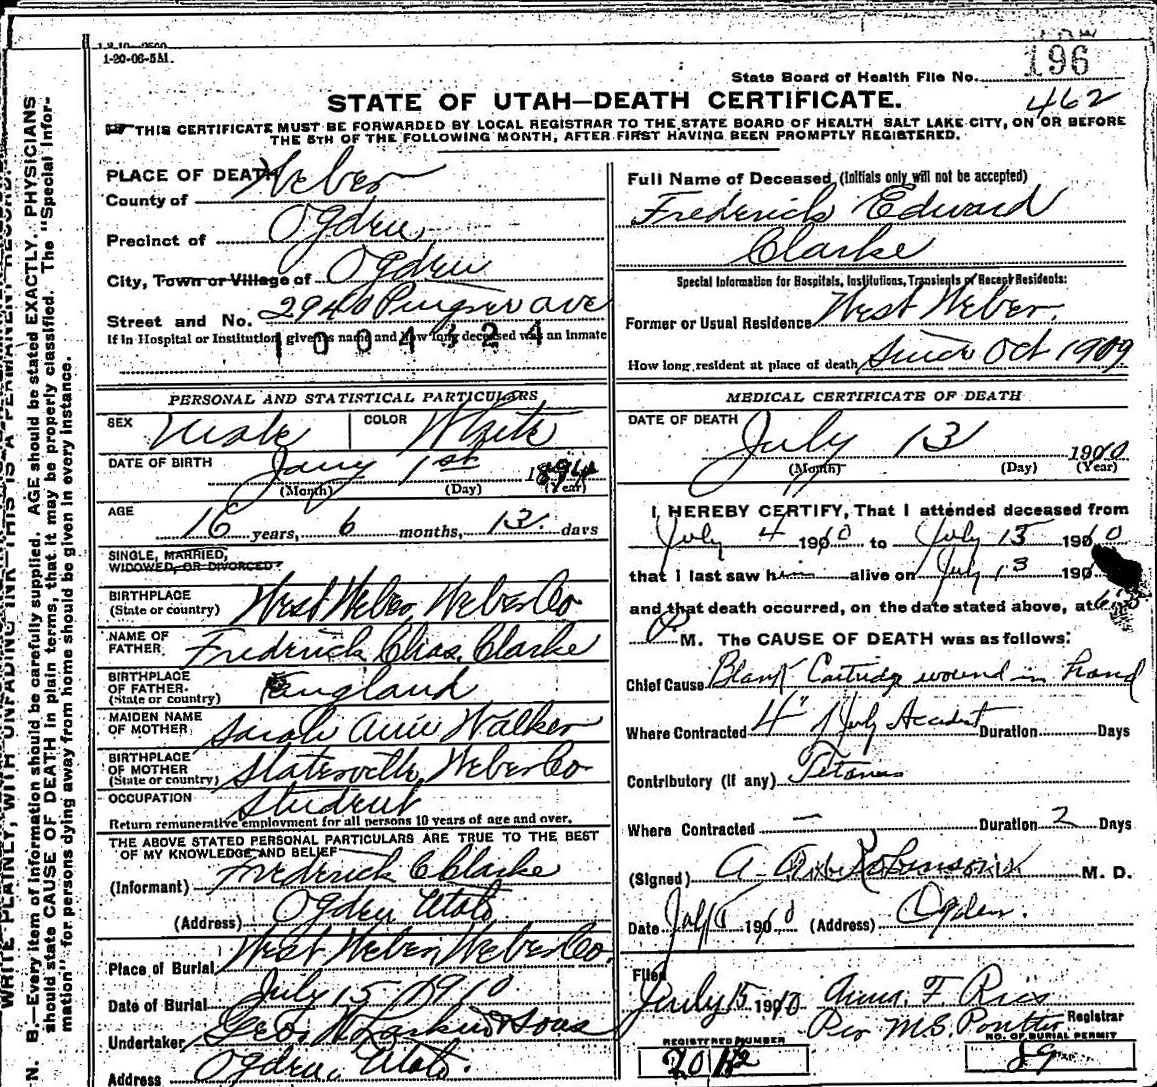 1-20-06-5M.
196
State Board of Health File No.
462
STATE OF UTAH—DEATH CERTIFICATE.
THIS CERTIFICATE MUST BE FORWARDED BY LOCAL REGISTRAR TO THE STATE BOARD OF HEALTH SALT LAKE CITY, ON OR BEFORE
THE 5TH OF THE FOLLOWING MONTH, AFTER FIRST HAVING BEEN PROMPTLY REGISTERED.
PLACE OF DEATH
County of Weber
Precinct of Ogden
City, Town or Village of Ogden
Street and No. 2940 Pingree ave
If in Hospital or Institution, give its name and how long deceased was an inmate
1004324
Full Name of Deceased (Initials only will not be accepted)
Frederick Edward
Clarke
Special Information for Hospitals, Institutions, Transients or Recent Residents:
Former or Usual Residence West Weber.
How long resident at place of death Since Oct 1909
PERSONAL AND STATISTICAL PARTICULARS
SEX Male COLOR White
DATE OF BIRTH Jany 1st 1894
(Month) (Day) (Year)
AGE
16 years, 6 months, 13 days
SINGLE, MARRIED,
WIDOWED, OR DIVORCED?
BIRTHPLACE
(State or country) West Weber, Weber Co
NAME OF
FATHER Fredrick Chas. Clarke
BIRTHPLACE
OF FATHER
(State or country) England
MAIDEN NAME
OF MOTHER Sarah Ann Walker
BIRTHPLACE
OF MOTHER
(State or country) Slaterville, Weber Co
OCCUPATION Student
Return remunerative employment for all persons 10 years of age and over.
THE ABOVE STATED PERSONAL PARTICULARS ARE TRUE TO THE BEST
OF MY KNOWLEDGE AND BELIEF
(Informant) Fredrick C Clarke
(Address) Ogden Utah
Place of Burial West Weber, Weber Co.
Date of Burial July 15 1910
Undertaker Geo. W. Larkin & Sons
Address Ogden, Utah.
MEDICAL CERTIFICATE OF DEATH
DATE OF DEATH
July 13 1910
(Month) (Day) (Year)
I HEREBY CERTIFY, That I attended deceased from
July 4 1910 to July 13 1910
that I last saw him alive on July 13 190
and that death occurred, on the date stated above, at
P M. The CAUSE OF DEATH was as follows:
Chief Cause Blank Cartridge wound in hand
Where Contracted 4" of July Accident Duration Days
Contributory (if any) Tetanus
Where Contracted — Duration 2 Days
(Signed) A. Robinson M. D.
Date 1910 (Address) Ogden.
Filed
July 15 1910 Anna. F. Ries
Registrar
Per M.S.
REGISTERED NUMBER
NO. OF BURIAL PERMIT
89
WRITE PLAINLY, WITH UNFADING INK THIS IS A PERMANENT RECORD.
N. B.—Every item of information should be carefully supplied. AGE should be stated EXACTLY. PHYSICIANS
should state CAUSE OF DEATH in plain terms, that it may be properly classified. The "Special Infor-
mation" for persons dying away from home should be given in every instance.